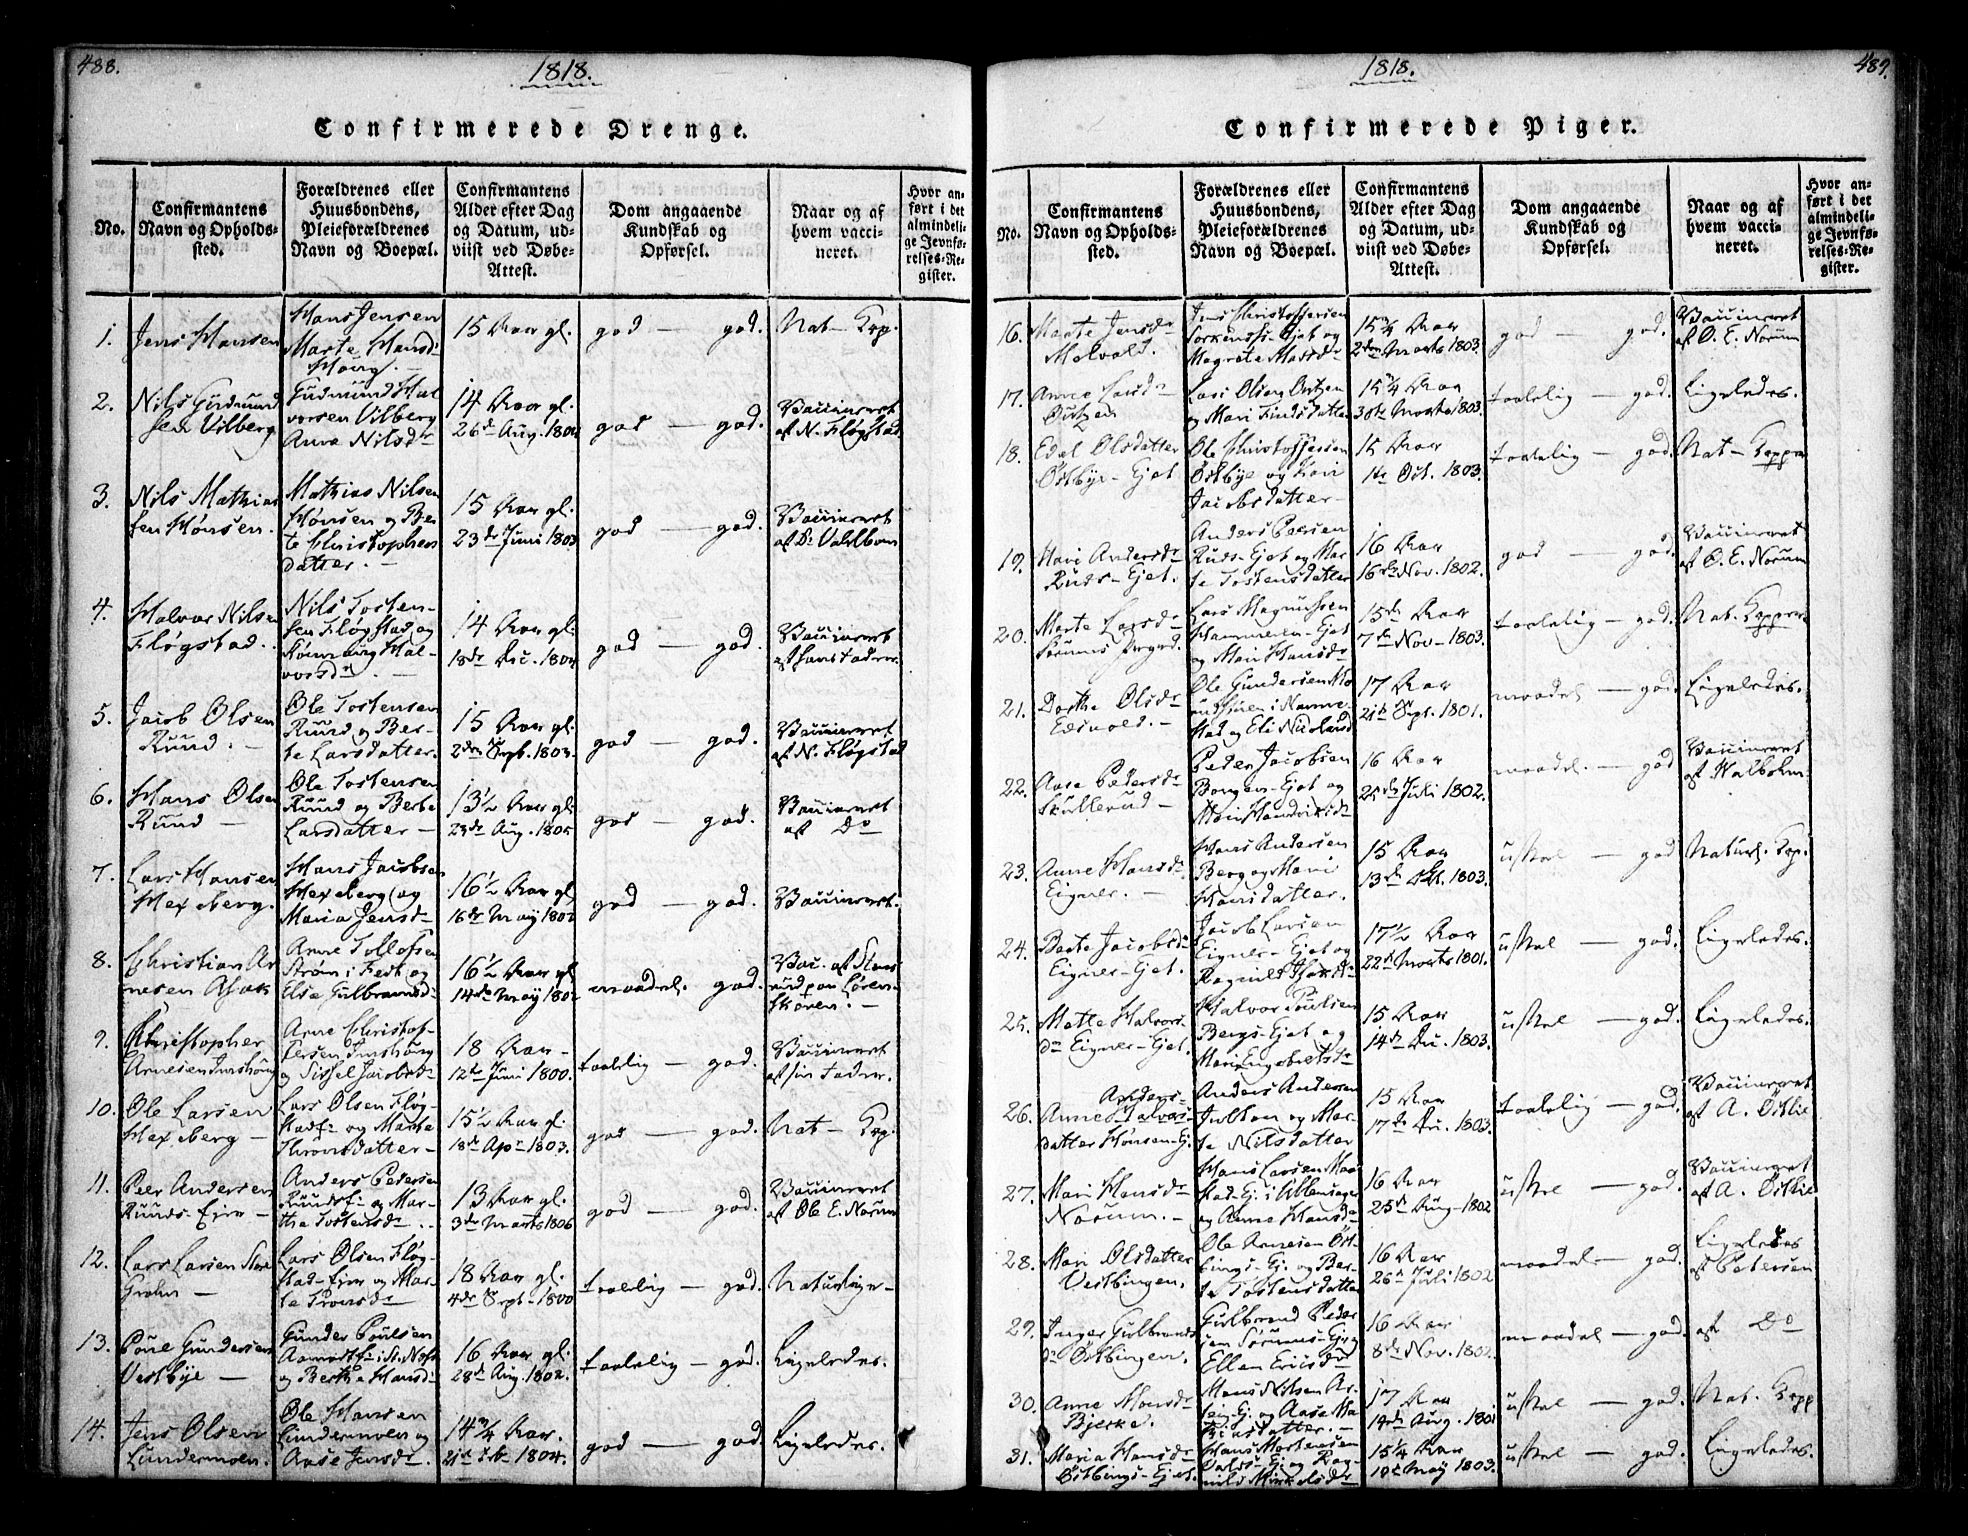 488.
1818.
Confirmerede Drenge.
No.
Confirmantens
Navn og Opholds-
sted.
Forældrenes eller
Huusbondens,
Pleieforældrenes
Navn og Boepæl.
Confirmantens
Alder efter Dag
og Datum, ud-
viist ved Døbe-
Attest.
Dom angaaende
Kundskab og
Opførsel.
Naar og af
hvem vacci-
neret.
Hvor an-
ført i det
almindeli-
ge Jevnfø-
relses-Re-
gister.
1.
Jens Hansen
Hans Jensen
Marte Hansd
15 Aar gl.
god — god.
Nat- Kop.
2.
Nils Gudmund
sen Vilberg
Gudmund Hal
vorsen Vilberg
Anne Nilsdr
14 Aar gl.
26de Aug. 1804
god — god.
Vaccineret
af N. Fløgstad
3.
Nils Mathias
sen Hønsen.
Mathias Nilsen
Hønsen og Ber
te Christophers
datter. —
15 Aar gl.
23de Juni 1803
god — god.
Vaccineret
4.
Halvor Nilsen
Fløgstad.
Nils Tosten-
sen Fløgstad og
Hal-
vorsdr
14 Aar gl.
18de Dec. 1804
god — god.
Vaccineret
5.
Jacob Olsen
Ruud. —
Ole Tostensen
Ruud og Ber-
te Larsdatter.
15 Aar gl.
2den Sept. 1803.
god — god.
Vaccineret
af N. Fløgstad
6.
Hans Olsen
Ruud —
Ole Tostensen
Ruud og Berte
Larsdatter —
13½ Aar gl.
23de Aug. 1805
god — god.
Vaccineret
af Do
7.
Lars Hansen
Hexeberg.
Hans Jacobsen
Hexeberg og
Maria Jensdr
16½ Aar gl.
16de May 1802
god — god.
Vaccineret.
8.
Christian Ar
nesen Asak
Arne Tollofsen
Strøm i Fedt og
Else Gulbrandsd
16½ Aar gl
14de May 1802
maadel. god.
Vac. af
9.
Christopher
Arnesen
Arne Christof-
fersen
og Sissel Jacobsd
18 Aar —
12te Juni 1800.
taalelig — god.
Vaccineret
af sin Fader.
10.
Ole Larsen
Hexeberg —
Lars Olsen Fløg-
og Marte
datter —
15½ Aar gl.
18de Apr 1803.
god — god.
Nat- Kop.
11.
Peer Andersen
Ruuds-Eier —
Anders Pedersen
og Mar-
the Tostensdr.
13 Aar gl.
3de Marts 1806
god — god.
Vaccineret
af Ole E. Norum
12.
Lars Larsen
—
Lars Olsen Fløg-
stad-Eier og Mar-
te Tronsdr
18 Aar gl.
4de Sept- 1800
taalelig — god.
Naturlige-
13.
Poul Gundersen
Vestbye —
Gunder Poulsen
og Berthe Hansd
16 Aar gl.
28de Aug. 1802.
taalelig — god.
Ligeledes.
14.
Jens Olsen
Lundermoen.
Ole Hansen
Lundermoen og
Aase Jensdr
14¾ Aar.
1804.
god — god.
Ligeledes.
489.
1818.
Confirmerede Piger.
No.
Confirmantens
Navn og Opholds-
sted.
Forældrenes eller
Huusbondens,
Pleieforældrenes
Navn og Boepæl.
Confirmantens
Alder efter Dag
og Datum, ud-
viist ved Døbe-
Attest.
Dom angaaende
Kundskab og
Opførsel.
Naar og af
hvem vacci-
neret.
Hvor an-
ført i det
almindeli-
ge Jevnfø-
relses-Re-
gister.
16.
Marte Jensdr
Melvold.
Jens Christoffersen
Ejet og
Magrete
Aar
2den Marts 1803.
god — god.
Vaccineret
af O. E. Norum
17.
Anne Larsdr
og Mari
Aar
Marts 1803.
taalelig — god.
Ligeledes.
18.
Edel Olsdatter
Østbye-Ejet
Ole Christoffersen
Østbye og Kari
Jacobsdatter —
15 Aar
1ste Oct. 1803.
taalelig — god.
Nat- Kopper
19.
Mari Andersdr
Ruds-Ejet.
Anders Peersen
Ruds-Ejet og Mar
te Tostensdatter
16 Aar
16de Nov. 1802.
god — god.
Vaccineret
af O. E. Norum
20.
Marte Larsdr
Lars Magnussen
Hammeren-Ejet
og Mari Hansdr
15de Aar
7de Nov- 1803.
taalelig — god.
Nat. Kopper
21.
Dorthe Olsdr
Edsvold. —
Ole Gundersen
17 Aar
Sept. 1801.
maadel — god.
Ligeledes.
22.
Aase Pedersdr
Skullerud —
Peder Jacobsen
Borgen-Ejet og
Mari Hendriksdr
16 Aar
25de Juli 1802.
maadel. — god
Vaccineret
23.
Anne Hansdr
Eigner. —
Hans Andersen
Berg og Mari
Hansdatter.
15 Aar
13de Oct. 1803.
uskel — god
Naturl. Kop.
24.
Berte Jacobsdr
Eigner-Ejet.
Jacob Larsen
Eigner-Ejet og
17½ Aar
22de Marts 1801.
uskel — god.
Ligeledes.
25.
Mette Halvors-
dr Eigner-Ejet.
Halvor Poulsen
Bergs-Ejet og
Mari Engebretsdr
15 Aar
14de Dec. 1803.
uskel — god.
Ligeledes.
26.
Anders-
Anne Halvors-
datter Hønsen-Ej.
Anders Andersen
og Mar-
te Nilsdatter
15 Aar
17de Dec. 1803.
taalelig — god.
Vaccineret
af A. Østlie
27.
Mari Hansdr
Norum. —
Hans Larsen
og Anne Hansdr
16 Aar
25de Aug- 1802
uskel — god.
Vaccineret
af A. Østlie
28.
Mari Olsdatter
Vestbingen.
Ole Arnesen Øst-
bings-Ej. og Ber-
te Tostensdatter
16 Aar
26de Juli 1802
maadel — god.
Ligeledes
af Petersen
29.
Inger Gulbrands
dr Østbingen.
Gulbrand Peder
sen Sørums-Ej. og
Ellen Ericsdr
16 Aar
8de Nov. 1802.
maadel — god.
af Do
30.
Anne Monsdr
Bjerke.
Mons Nilsen
Ej. og Aase
datter. —
17 Aar
14de Aug. 1801
uskel — god.
Nat. Kopp
31.
Maria Hansdr
Østbings-Ejet.
Hans Mortensen
Ej og Rag-
nild Mickelsdr
15¼ Aar
May 1803.
uskel — god.
Ligeledes.